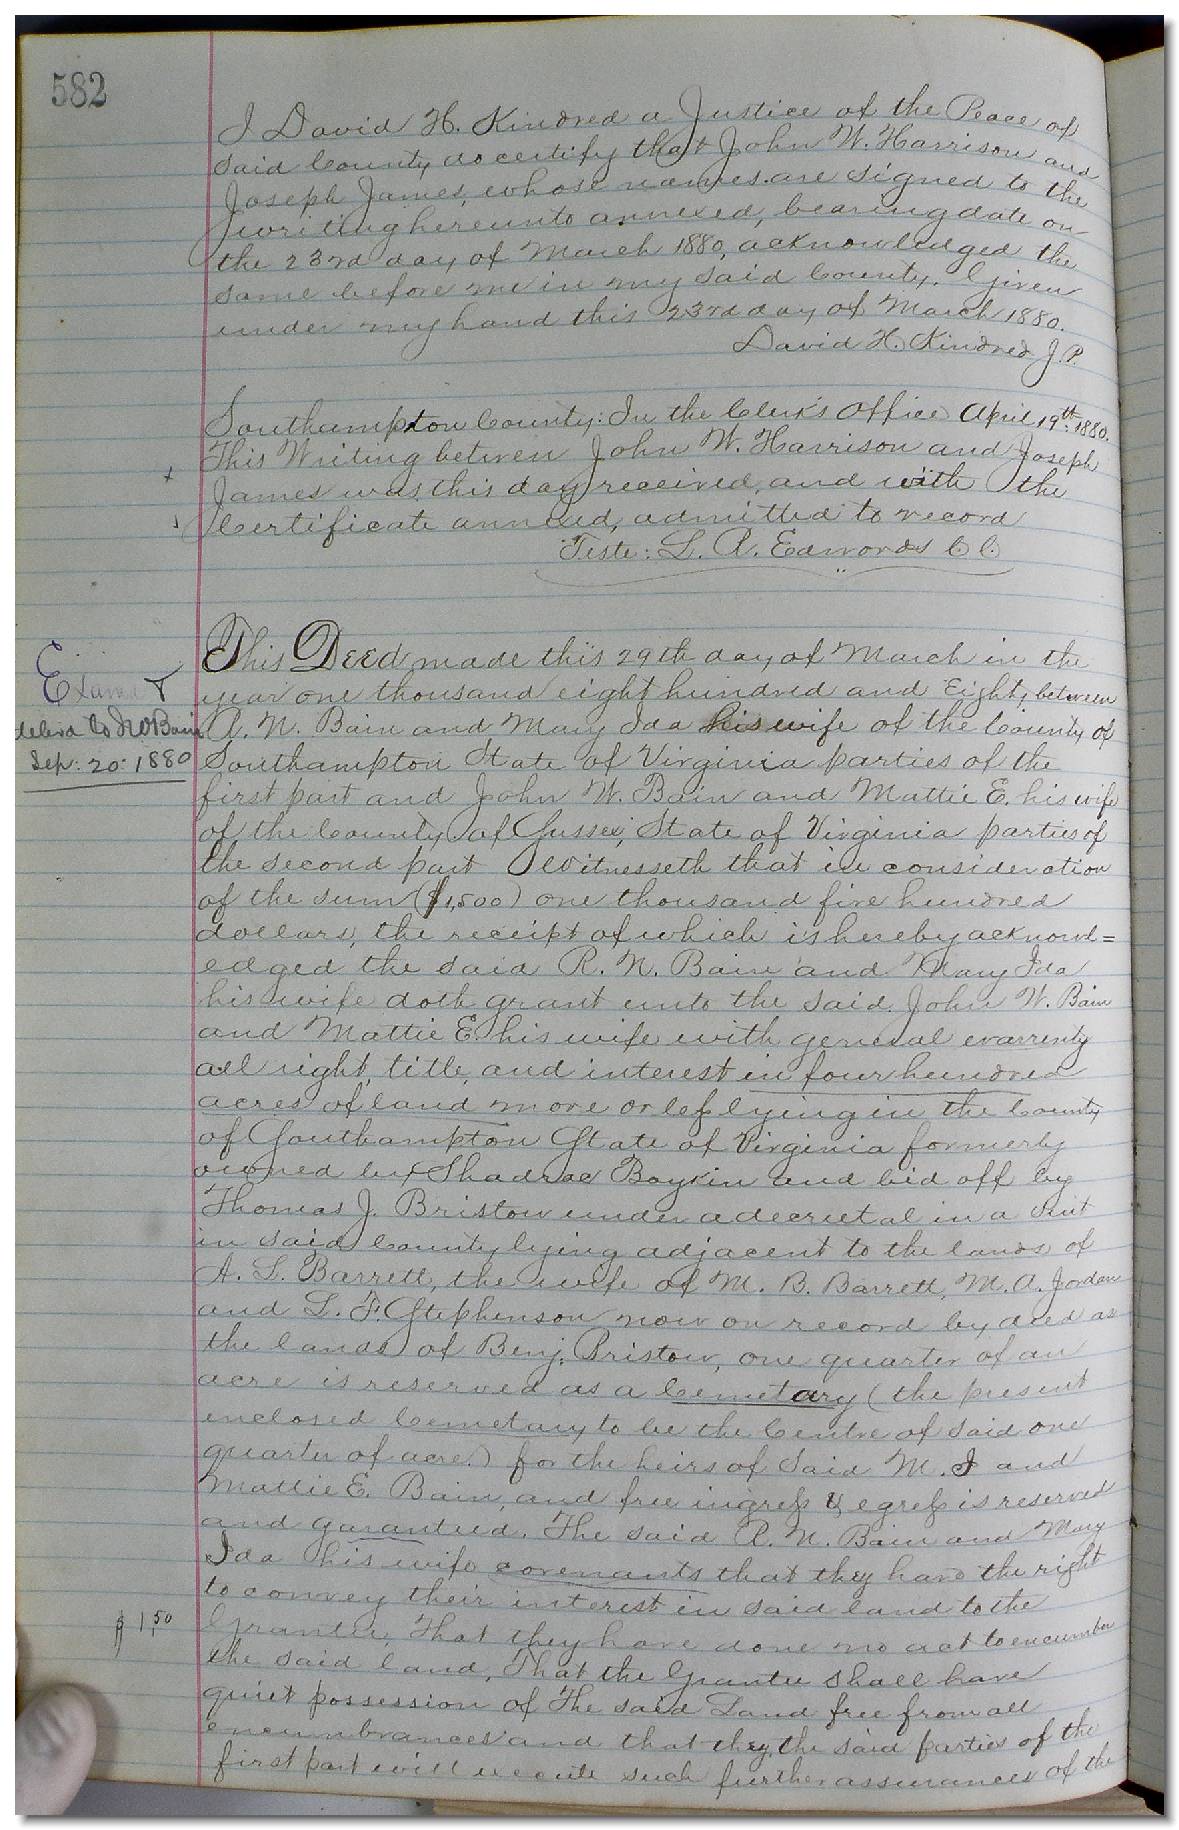 582
I David H. Kindred a Justice of the Peace of
said County, do certify that John W. Harrison and
Joseph James, whose names are signed to the
writing hereunto annexed, bearing date on
the 23rd day of March 1880, acknowledged the
same before me in my said County. Given
under my hand this 23rd day of March 1880.
David H. Kindred J.P.
Southampton County: In the Clerk's Office April 19th: 1880.
This Writing between John W. Harrison and Joseph
James was this day received, and with the
Certificate annexed, admitted to record
Teste: L. R. Edwards C C.
This Deed made this 29th day of March in the
year one thousand eight hundred and Eighty, between
R. N. Bain and Mary Ida his wife of the County of
Southampton State of Virginia parties of the
first part and John W. Bain and Mattie E. his wife
of the County of Sussex, State of Virginia parties of
the second part Witnesseth that in consideration
of the sum ($1,500) one thousand five hundred
dollars, the receipt of which is hereby acknowl=
edged the said R. N. Bain and Mary Ida
his wife doth grant unto the said John W. Bain
and Mattie E. his wife with general warrenty
all right, title, and interest in four hundred
acres of land more or less lying in the County
of Southampton State of Virginia formerly
owned by Shadrac Boykin and bid off by
Thomas J. Bristow under a decretal in a Suit
in said County lying adjacent to the lands of
A. L. Barrett, the wife of M. B. Barrett, M. A. Jordan
and L. F. Stephenson now on record by deed as
the lands of Benj. Bristow, one quarter of an
acre is reserved as a Cemetary (the present
enclosed Cemetary to be the Centre of said one
quarter of acre.) for the heirs of Said M. I and
Mattie E. Bain, and free ingress & egress is reserved
and garanteed. The said R. N. Bain and Mary
Ida his wife covenants that they have the right
to convey their interest in said land to the
Grantee, That they have done no act to encumber
the said land, That the Grantee shall have
quiet possession of The said Land free from all
encumbrances and that they the said parties of the
first part will execute such further assurances of the
Examd
delivd to J W Bain
Sep: 20: 1880
$1,50